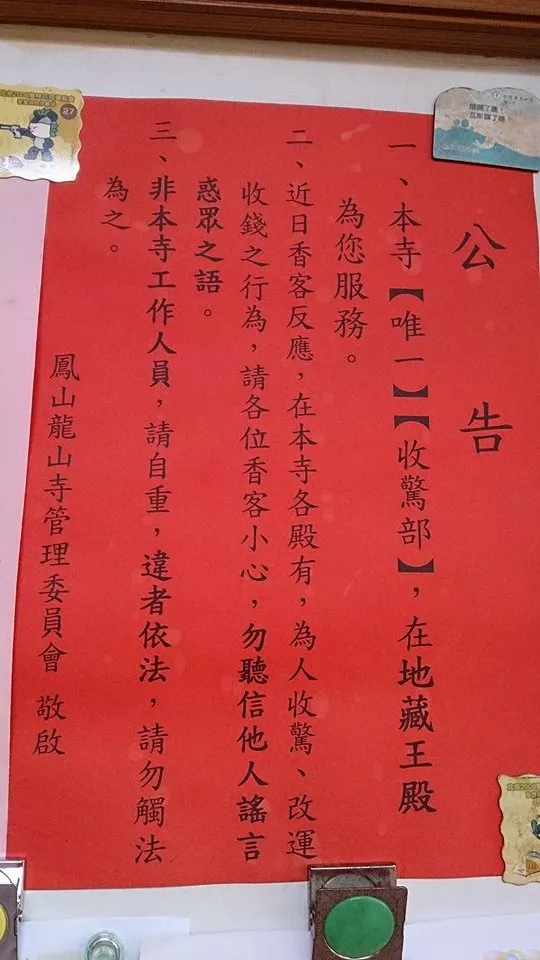 公告
一、本寺【唯一】【收驚部】，在地藏王殿
為您服務。
二、近日香客反應，在本寺各殿有，為人收驚、改運
收錢之行為，請各位香客小心，勿聽信他人謠言
惑眾之語。
三、非本寺工作人員，請自重，違者依法，請勿觸法
為之。
鳳山龍山寺管理委員會 敬啟
27